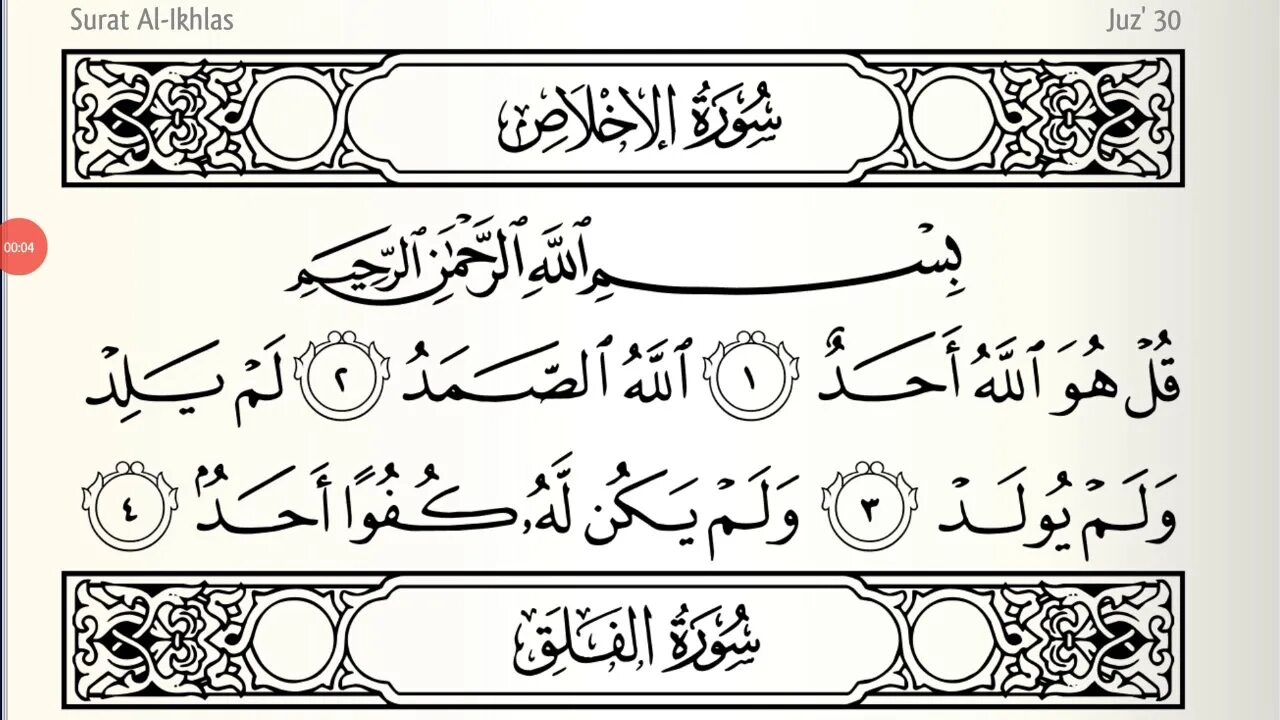 Surat Al-Ikhlas Juz' 30
سُورَةُ الإِخْلَاصِ
بِسْمِ ٱللَّهِ ٱلرَّحْمَٰنِ ٱلرَّحِيمِ
00:04
قُلْ هُوَ ٱللَّهُ أَحَدٌ ١ ٱللَّهُ ٱلصَّمَدُ ٢ لَمْ يَلِدْ
وَلَمْ يُولَدْ ٣ وَلَمْ يَكُن لَّهُۥ كُفُوًا أَحَدٌۢ ٤
سُورَةُ الفَلَقِ